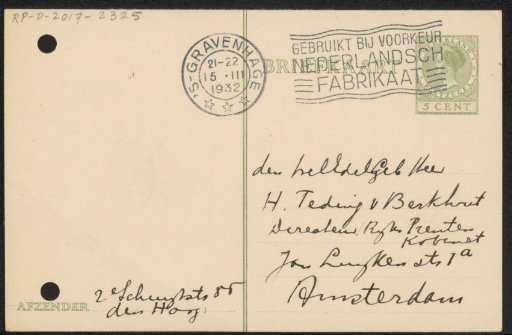 RP-D-2017-2325
'S-GRAVENHAGE
21-22
15 III
1932
GEBRUIKT BIJ VOORKEUR
NEDERLANDSCH
FABRIKAAT
BRIEFKAART
5 CENT
den WelEdelGeb Heer
H. Teding v Berkhout
Directeur Ryks Prenten
Kabinet
Jan Luykenstr 1a
Amsterdam
AFZENDER
2e Schuytstr 85
den Haag